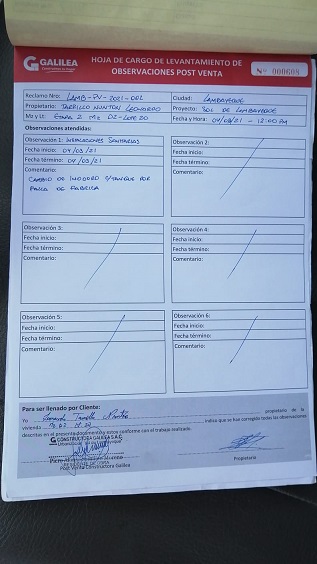 GALILEA
HOJA DE CARGO DE LEVANTAMIENTO DE
OBSERVACIONES POST VENTA
Nº 000608
Reclamo Nro: LAMB-PV-2021-
Ciudad: LAMBAYEQUE
Propietario: TARRILLO NUNTON LEONARDO
Proyecto: SOL DE LAMBAYEQUE
Mz y Lt: ETAPA 2 Mz D2-LOTE 20
Fecha y Hora: 04/03/21 - 12:00 PM
Observaciones atendidas:
Observación 1: INSTALACIONES SANITARIAS
Fecha inicio: 04/03/21
Fecha término: 04/03/21
Comentario:
CAMBIO DE INODORO S/TANQUE POR
FALLA DE FABRICA
Observación 2:
Fecha inicio:
Fecha término:
Comentario:
Observación 3:
Fecha inicio:
Fecha término:
Comentario:
Observación 4:
Fecha inicio:
Fecha término:
Comentario:
Observación 5:
Fecha inicio:
Fecha término:
Comentario:
Observación 6:
Fecha inicio:
Fecha término:
Comentario:
Para ser llenado por Cliente:
Yo Leonardo Tarrillo Nunton propietario de la
vivienda indica que se han corregido todas las observaciones
descritas en el presente documento y estoy conforme con el trabajo realizado.
CONSTRUCTORA GALILEA S.A.C.
Post Venta Constructora Galilea
Propietario